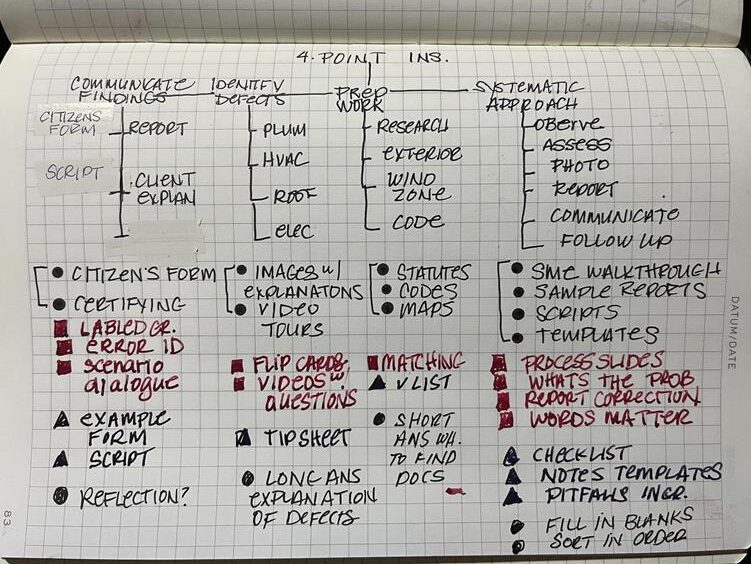 4. POINT INS.
COMMUNICATE
FINDINGS
CITIZENS
FORM
REPORT
SCRIPT
CLIENT
EXPLAN
IDENITFY
DEFECTS
PLUM
HVAC
ROOF
ELEC
PREP
WORK
RESEARCH
EXTERIOR
WIND
ZONE
CODE
SYSTEMATIC
APPROACH
OBERVE
ASSESS
PHOTO
REPORT
COMMUNICATE
FOLLOW UP
CITIZEN'S FORM
CERTIFYING
LABLED GR.
ERROR ID
SCENARIO
DIALOGUE
EXAMPLE
FORM
SCRIPT
REFLECTION?
IMAGES W/
EXPLANATONS
VIDEO
TOURS
FLIP CARDS
VIDEOS W.
QUESTIONS
TIPSHEET
LONG ANS
EXPLANATION
OF DEFECTS
STATUTES
CODES
MAPS
MATCHING
V LIST
SHORT
ANS WH.
TO FIND
DOCS
SME WALKTHROUGH
SAMPLE REPORTS
SCRIPTS
TEMPLATES
PROCESS SLIDES
WHATS THE PROB
REPORT CORRECTION
WORDS MATTER
CHECKLIST
NOTES TEMPLATES
PITFALLS INGR.
FILL IN BLANKS
SORT IN ORDER
DATUM/DATE
83